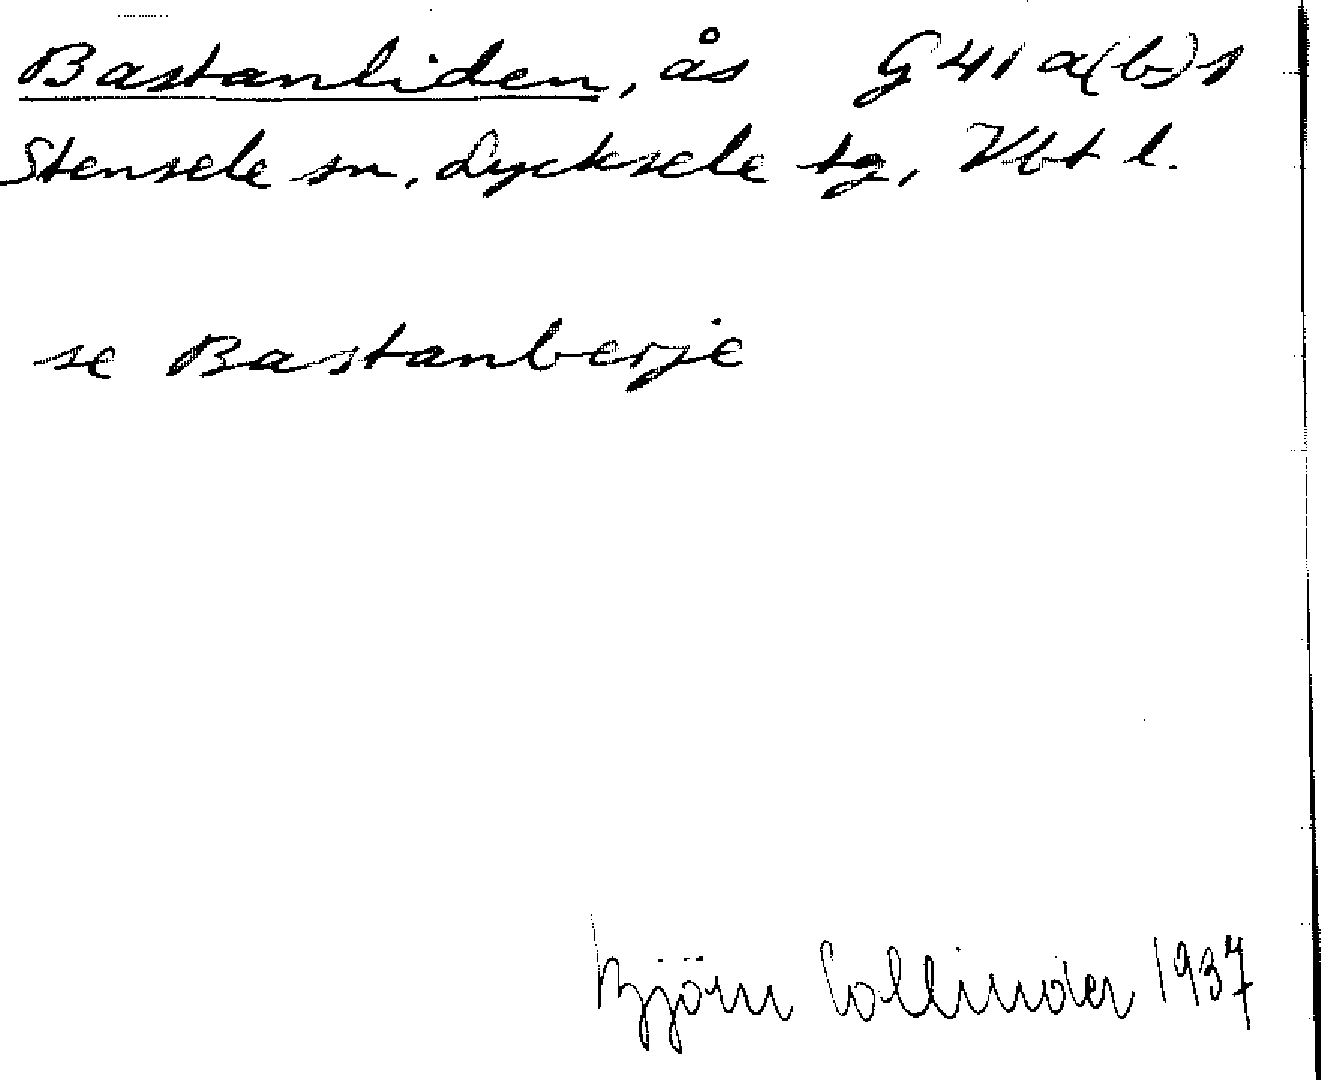 Bastanliden, ås G 41 a(b)s
Stensele sn, Lycksele tg, Vbt l.
se Bastanberje
Björn Collinder 1937